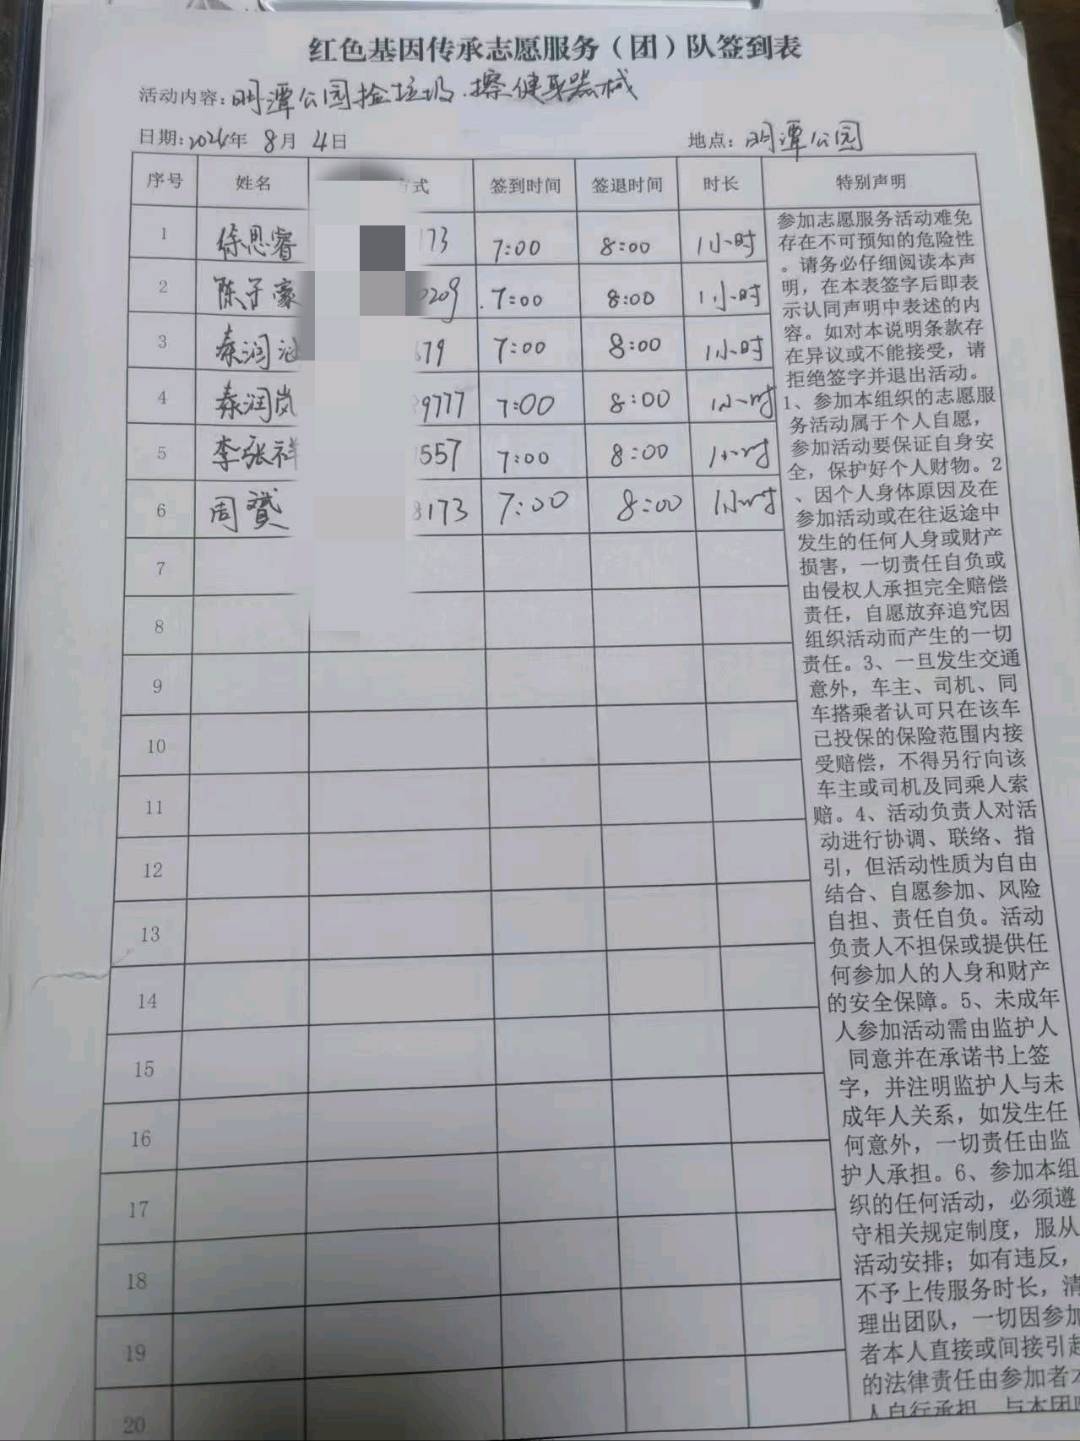 红色基因传承志愿服务（团）队签到表
活动内容：明潭公园捡垃圾．擦健身器械
日期：2024年 8月 4日 地点：明潭公园
序号 姓名 方式 签到时间 签退时间 时长 特别声明
1 徐思睿 173 7:00 8:00 1小时
2 陈子豪 0209 7:00 8:00 1小时
3 秦润 679 7:00 8:00 1小时
4 秦润岚 9777 7:00 8:00 1小时
5 李张祥 557 7:00 8:00 1小时
6 周赟 8173 7:00 8:00 1小时
7
8
9
10
11
12
13
14
15
16
17
18
19
20
参加志愿服务活动难免
存在不可预知的危险性
。请务必仔细阅读本声
明，在本表签字后即表
示认同声明中表述的内
容。如对本说明条款存
在异议或不能接受，请
拒绝签字并退出活动。
1、参加本组织的志愿服
务活动属于个人自愿，
参加活动要保证自身安
全，保护好个人财物。2
、因个人身体原因及在
参加活动或在往返途中
发生的任何人身或财产
损害，一切责任自负或
由侵权人承担完全赔偿
责任，自愿放弃追究因
组织活动而产生的一切
责任。3、一旦发生交通
意外，车主、司机、同
车搭乘者认可只在该车
已投保的保险范围内接
受赔偿，不得另行向该
车主或司机及同乘人索
赔。4、活动负责人对活
动进行协调、联络、指
引，但活动性质为自由
结合、自愿参加、风险
自担、责任自负。活动
负责人不担保或提供任
何参加人的人身和财产
的安全保障。5、未成年
人参加活动需由监护人
同意并在承诺书上签
字，并注明监护人与未
成年人关系，如发生任
何意外，一切责任由监
护人承担。6、参加本组
织的任何活动，必须遵
守相关规定制度，服从
活动安排；如有违反，
不予上传服务时长，清
理出团队，一切因参加
者本人直接或间接引起
的法律责任由参加者本
人自行承担，与本团队